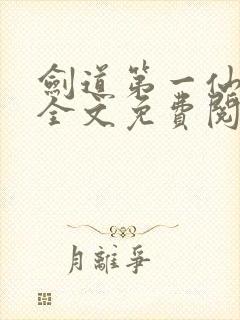 劍道第一仙
全文免費閱
月離爭